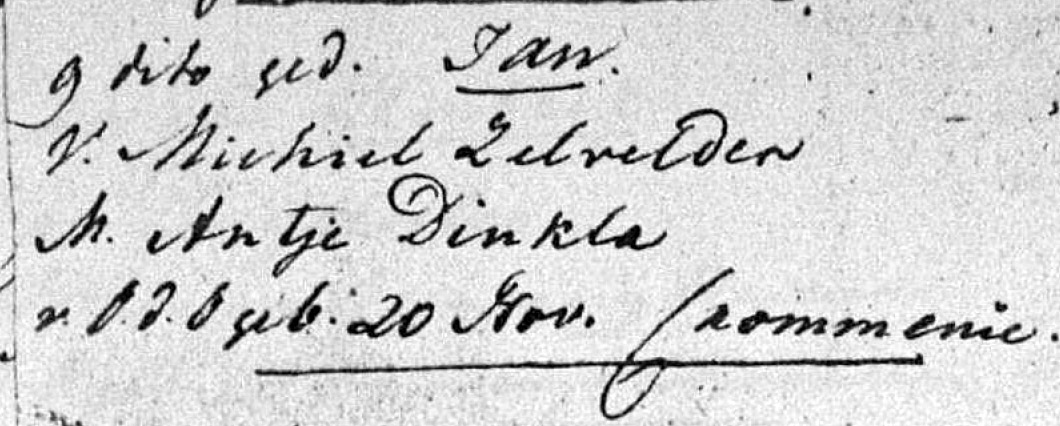 9 dito ged. Jan.
V. Michiel Zelvelder
M. Antje Dinkla
geb. 20 Nov. Crommenie.